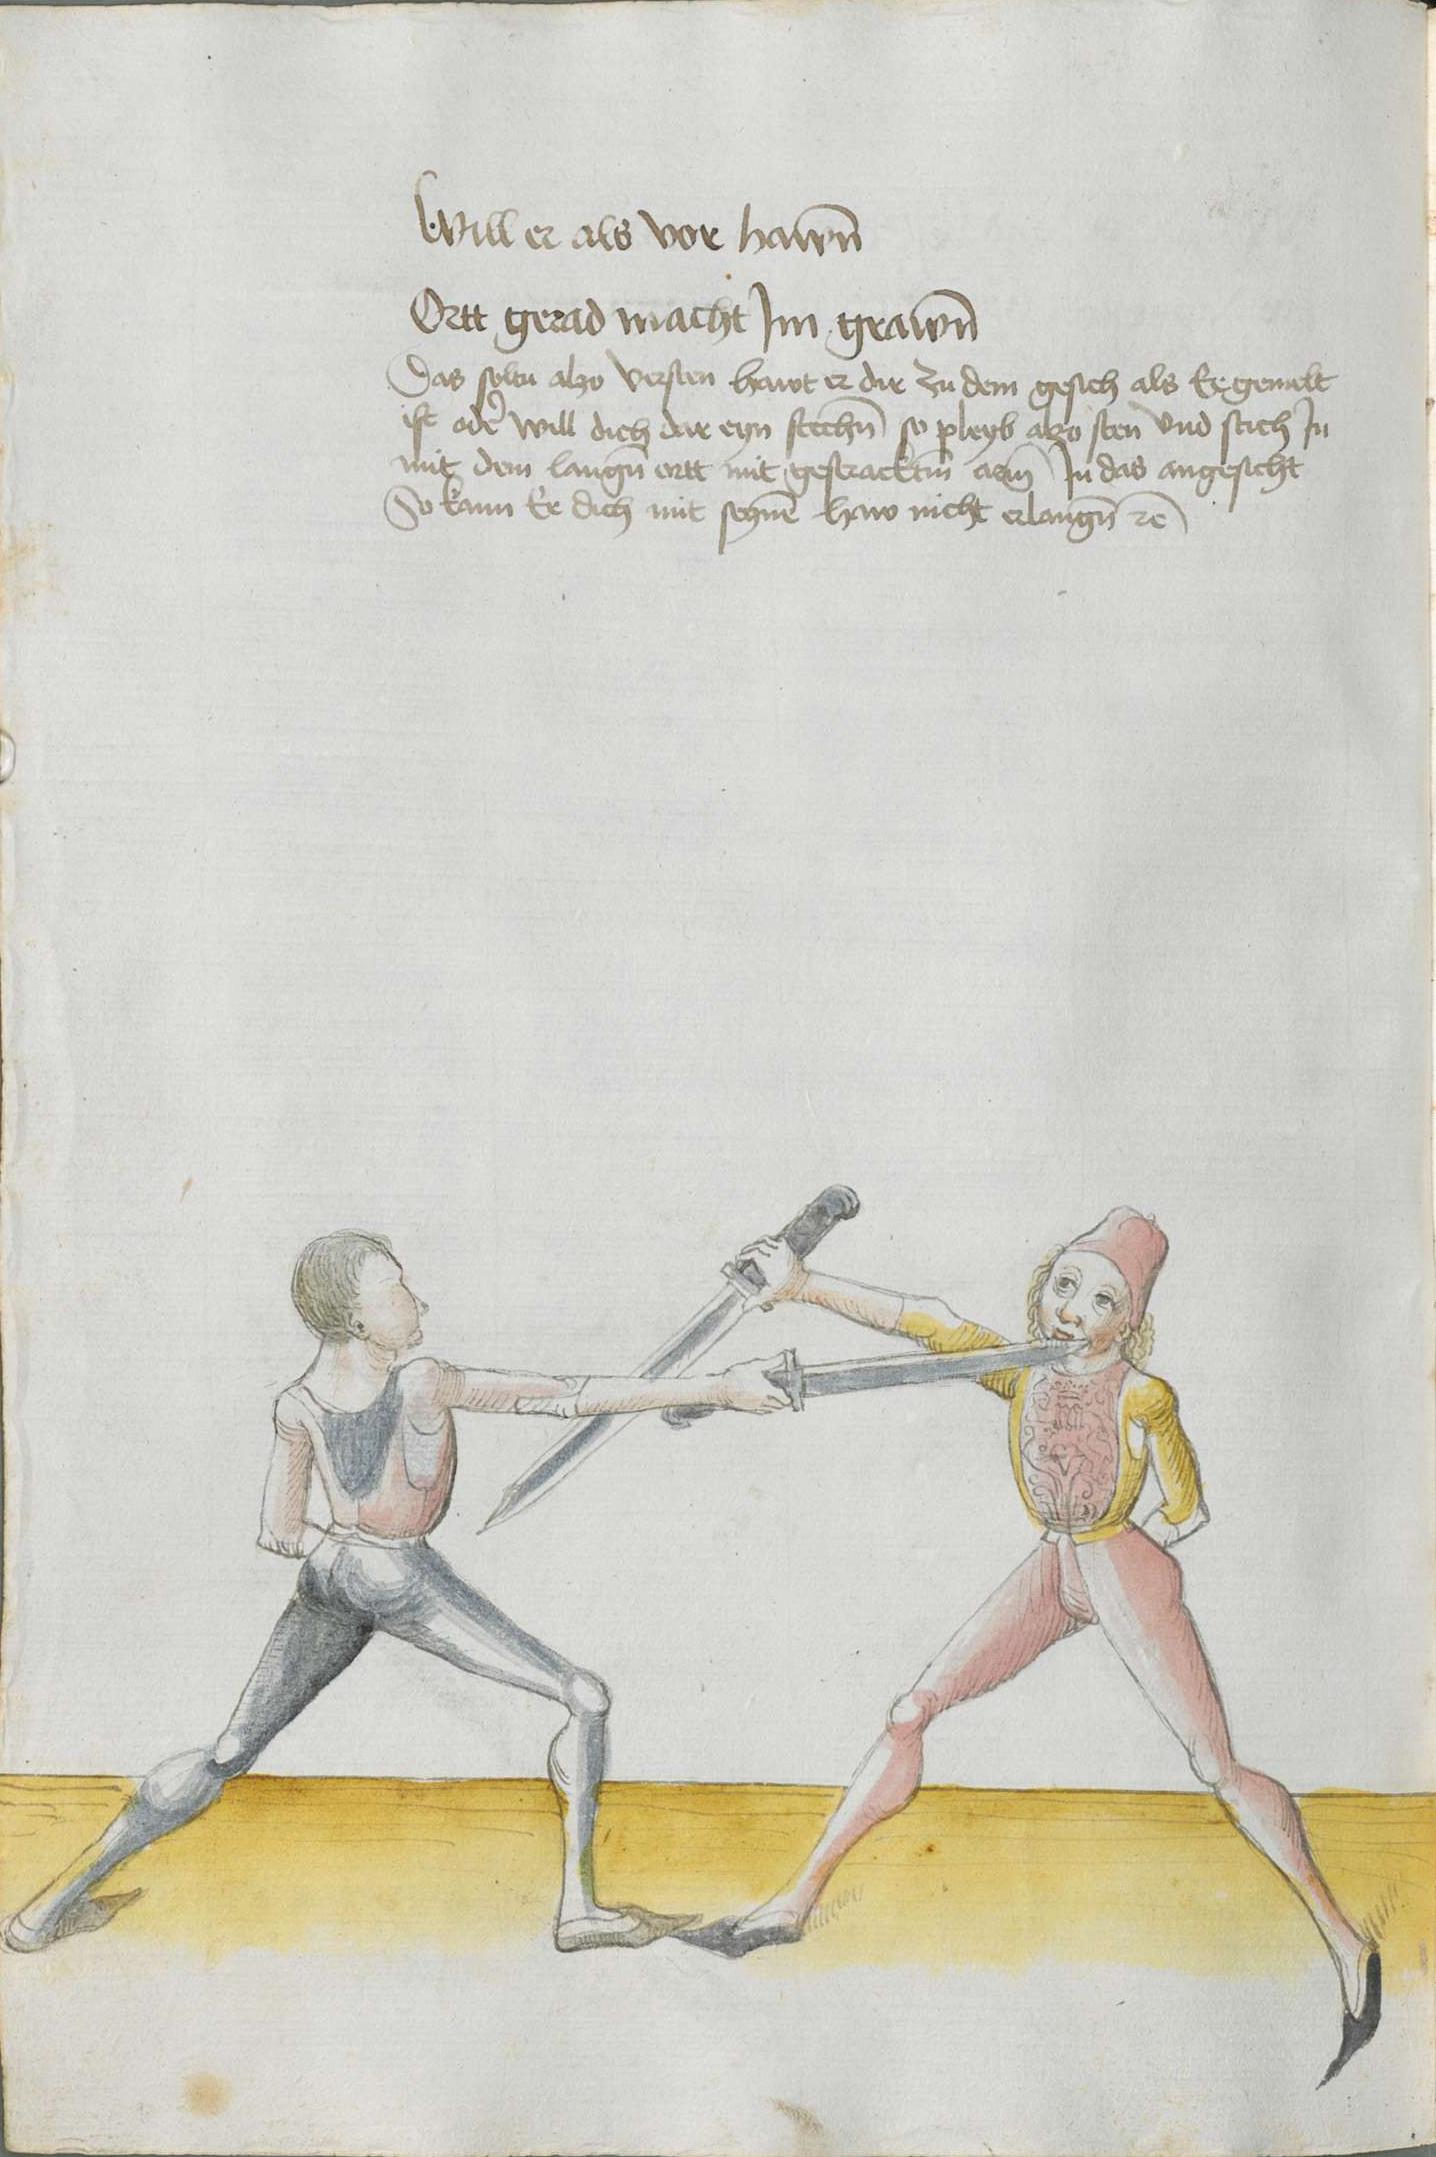 Will er als vor hawn̄
Ortt gerad macht Im grawn̄
Das soltu also versten hawt er dir zu dem gesich als Er gemalt
ist oder will dich dar eyn stechn̄ so pleyb also sten vnd stich In
mit dem langn̄ ortt mit gestracktm̄ arm In das angesicht
So kann Er dich mit seynē haw nicht erlangn̄ rē